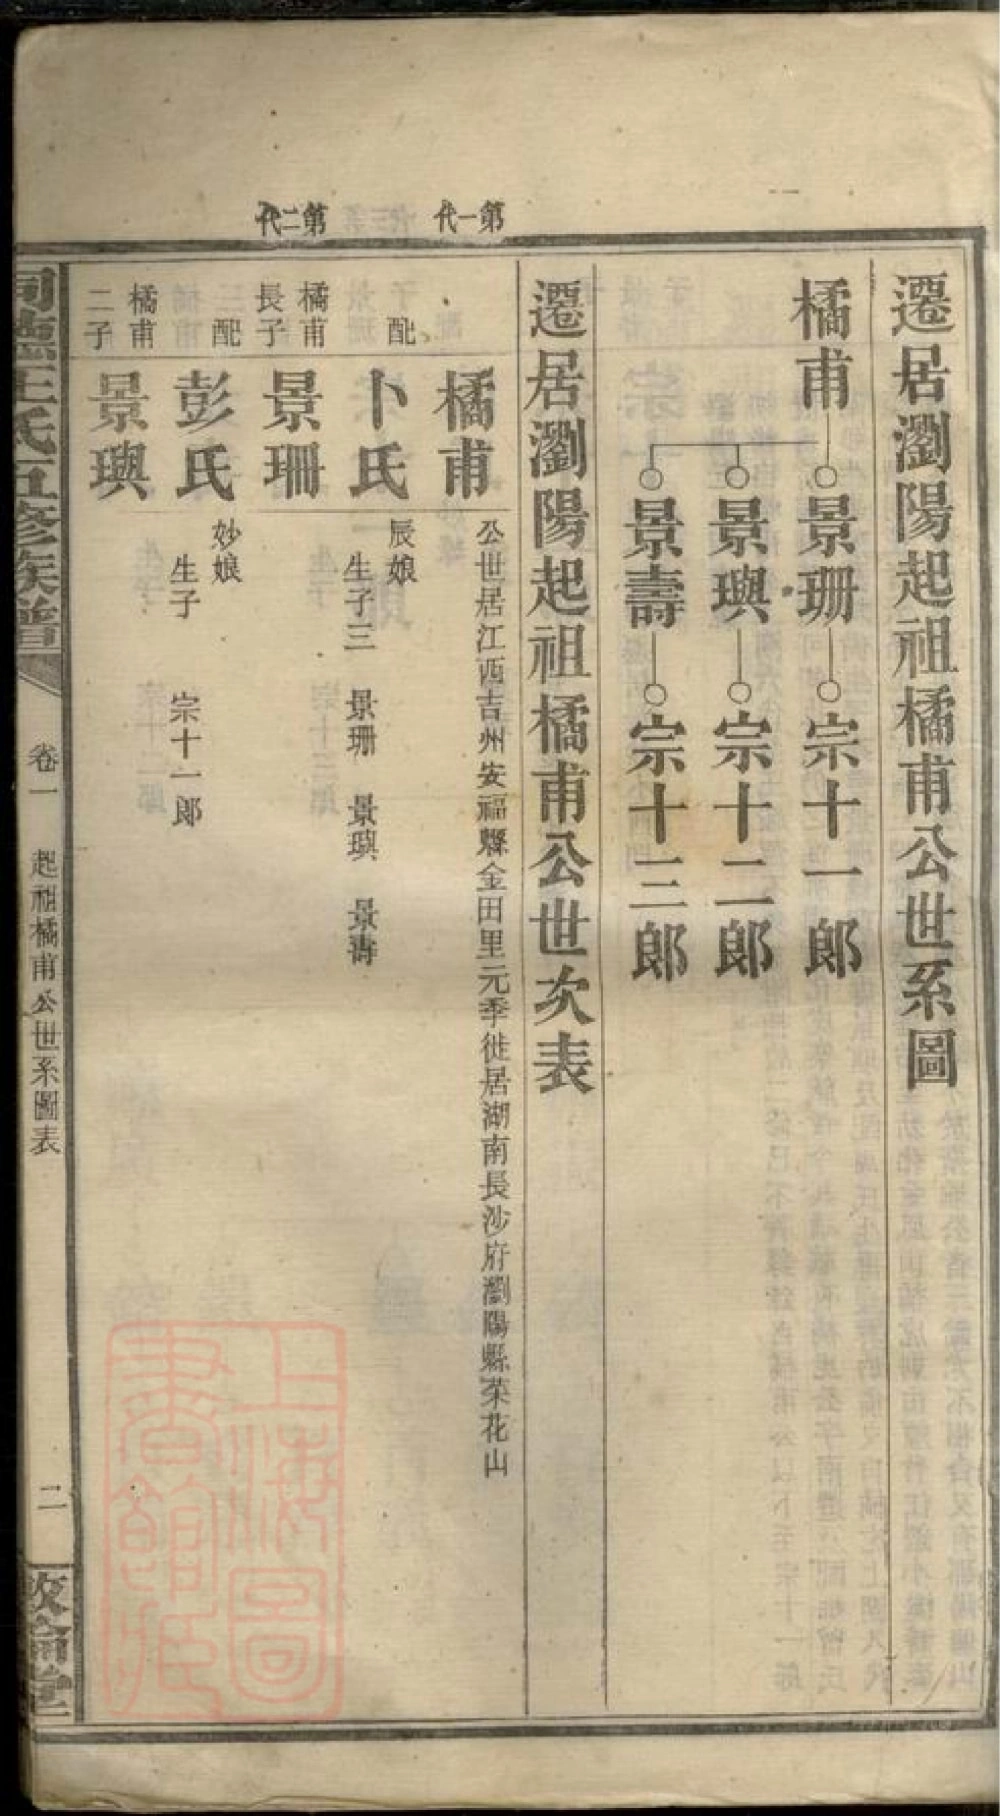 遷居瀏陽起祖橘甫公世系圖
橘甫 景珊 宗十一郎
景璵 宗十二郎
景壽 宗十三郎
遷居瀏陽起祖橘甫公世次表
第一代
橘甫 公世居江西吉州安福縣金田里元季徙居湖南長沙府瀏陽縣茶花山
配 卜氏 辰娘
生子三 景珊 景璵 景壽
第二代
橘甫
長子
景珊
配 彭氏 妙娘
生子 宗十一郎
橘甫
二子
景璵
王氏五修族譜
卷一 起祖橘甫公世系圖表
二
敦倫堂
上海圖
書館藏